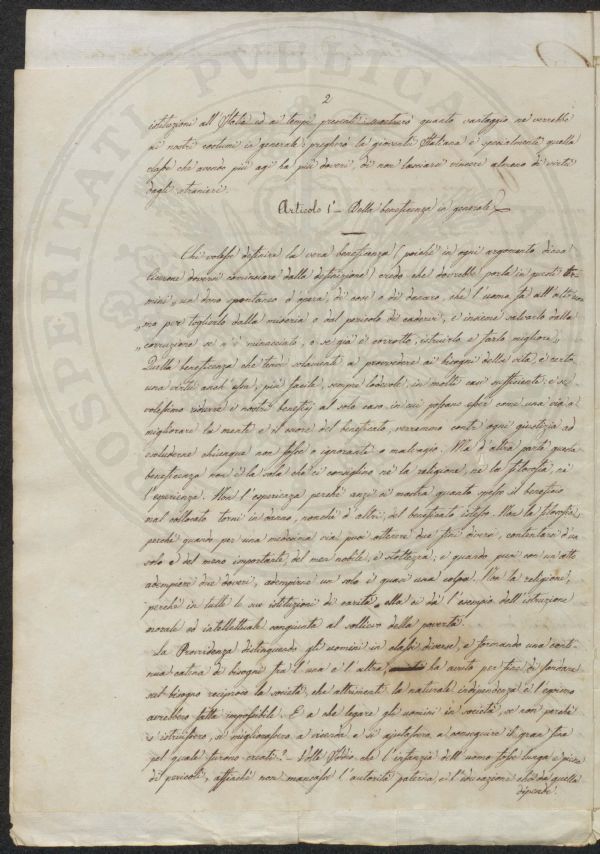 2
istituzioni all'Italia ed ai tempi presenti mostrerò quanto vantaggio ne verrebbe
ai nostri costumi in generale: pregherò la gioventù Italiana e specialmente quella
classe che avendo più agi ha più doveri, di non lasciarsi vincere almeno di virtù
dagli stranieri.
Articolo 1° — Della beneficenza in generale
Chi volesse definire la vera beneficenza (poichè in ogni argomento dice
Cicerone doversi cominciare dalla definizione) credo che dovrebbe porla in questi ter-
mini „ un dono spontaneo d'opera, di cose o di denaro, che l'uomo fa all'altro uo-
„ mo per toglierlo dalla miseria o dal pericolo di cadervi, e insieme salvarlo dalla
„ corruzione se n'è minacciato, e se già è corrotto, istruirlo e farlo migliore „
Quella beneficenza che tende solamente a provvedere ai bisogni della vita, è certo
una virtù anch'essa, più facile, sempre lodevole, in molti casi sufficiente: e se
volessimo ridurre i nostri benefizj al solo caso in cui possano esser come una via a
migliorare la mente e il cuore del beneficato, verremmo contro ogni giustizia ad
escluderne chiunque non fosse o ignorante o malvagio. Ma d'altra parte questa
beneficenza non è la sola che ci consiglino nè la religione, nè la filosofia, nè
l'esperienza. Non l'esperienza perchè anzi ci mostra quanto spesso il beneficio
mal collocato torni in danno, nonchè d'altri, del beneficato istesso. Non la filosofia,
perchè quando per una medesima via puoi ottenere due fini diversi, contentarsi d'un
solo e del meno importante, del men nobile, è stoltezza; e quando puoi con un atto
adempiere due doveri, adempirne un solo è quasi una colpa. Non la religione,
perchè in tutte le sue istituzioni di carità ella ci dà l'esempio dell'istruzione
morale ed intellettuale congiunta al sollievo della povertà.
La Provvidenza distinguendo gli uomini in classi diverse, e formando una conti-
nua catena di bisogni fra l'una e l'altra, ha avuto per fine di fondare
nel bisogno reciproco la società, che altrimenti la naturale indipendenza e l'egoismo
avrebbero fatta impossibile. E a che legare gli uomini in società, se non perchè
s'istruissero, si migliorassero a vicenda e si ajutassero a conseguire il gran fine
pel quale furono creati? — Volle Iddio che l'infanzia dell'uomo fosse lunga e piena
di pericoli, affinchè non mancasse l'autorità paterna, e l'educazione che da quella
dipende.